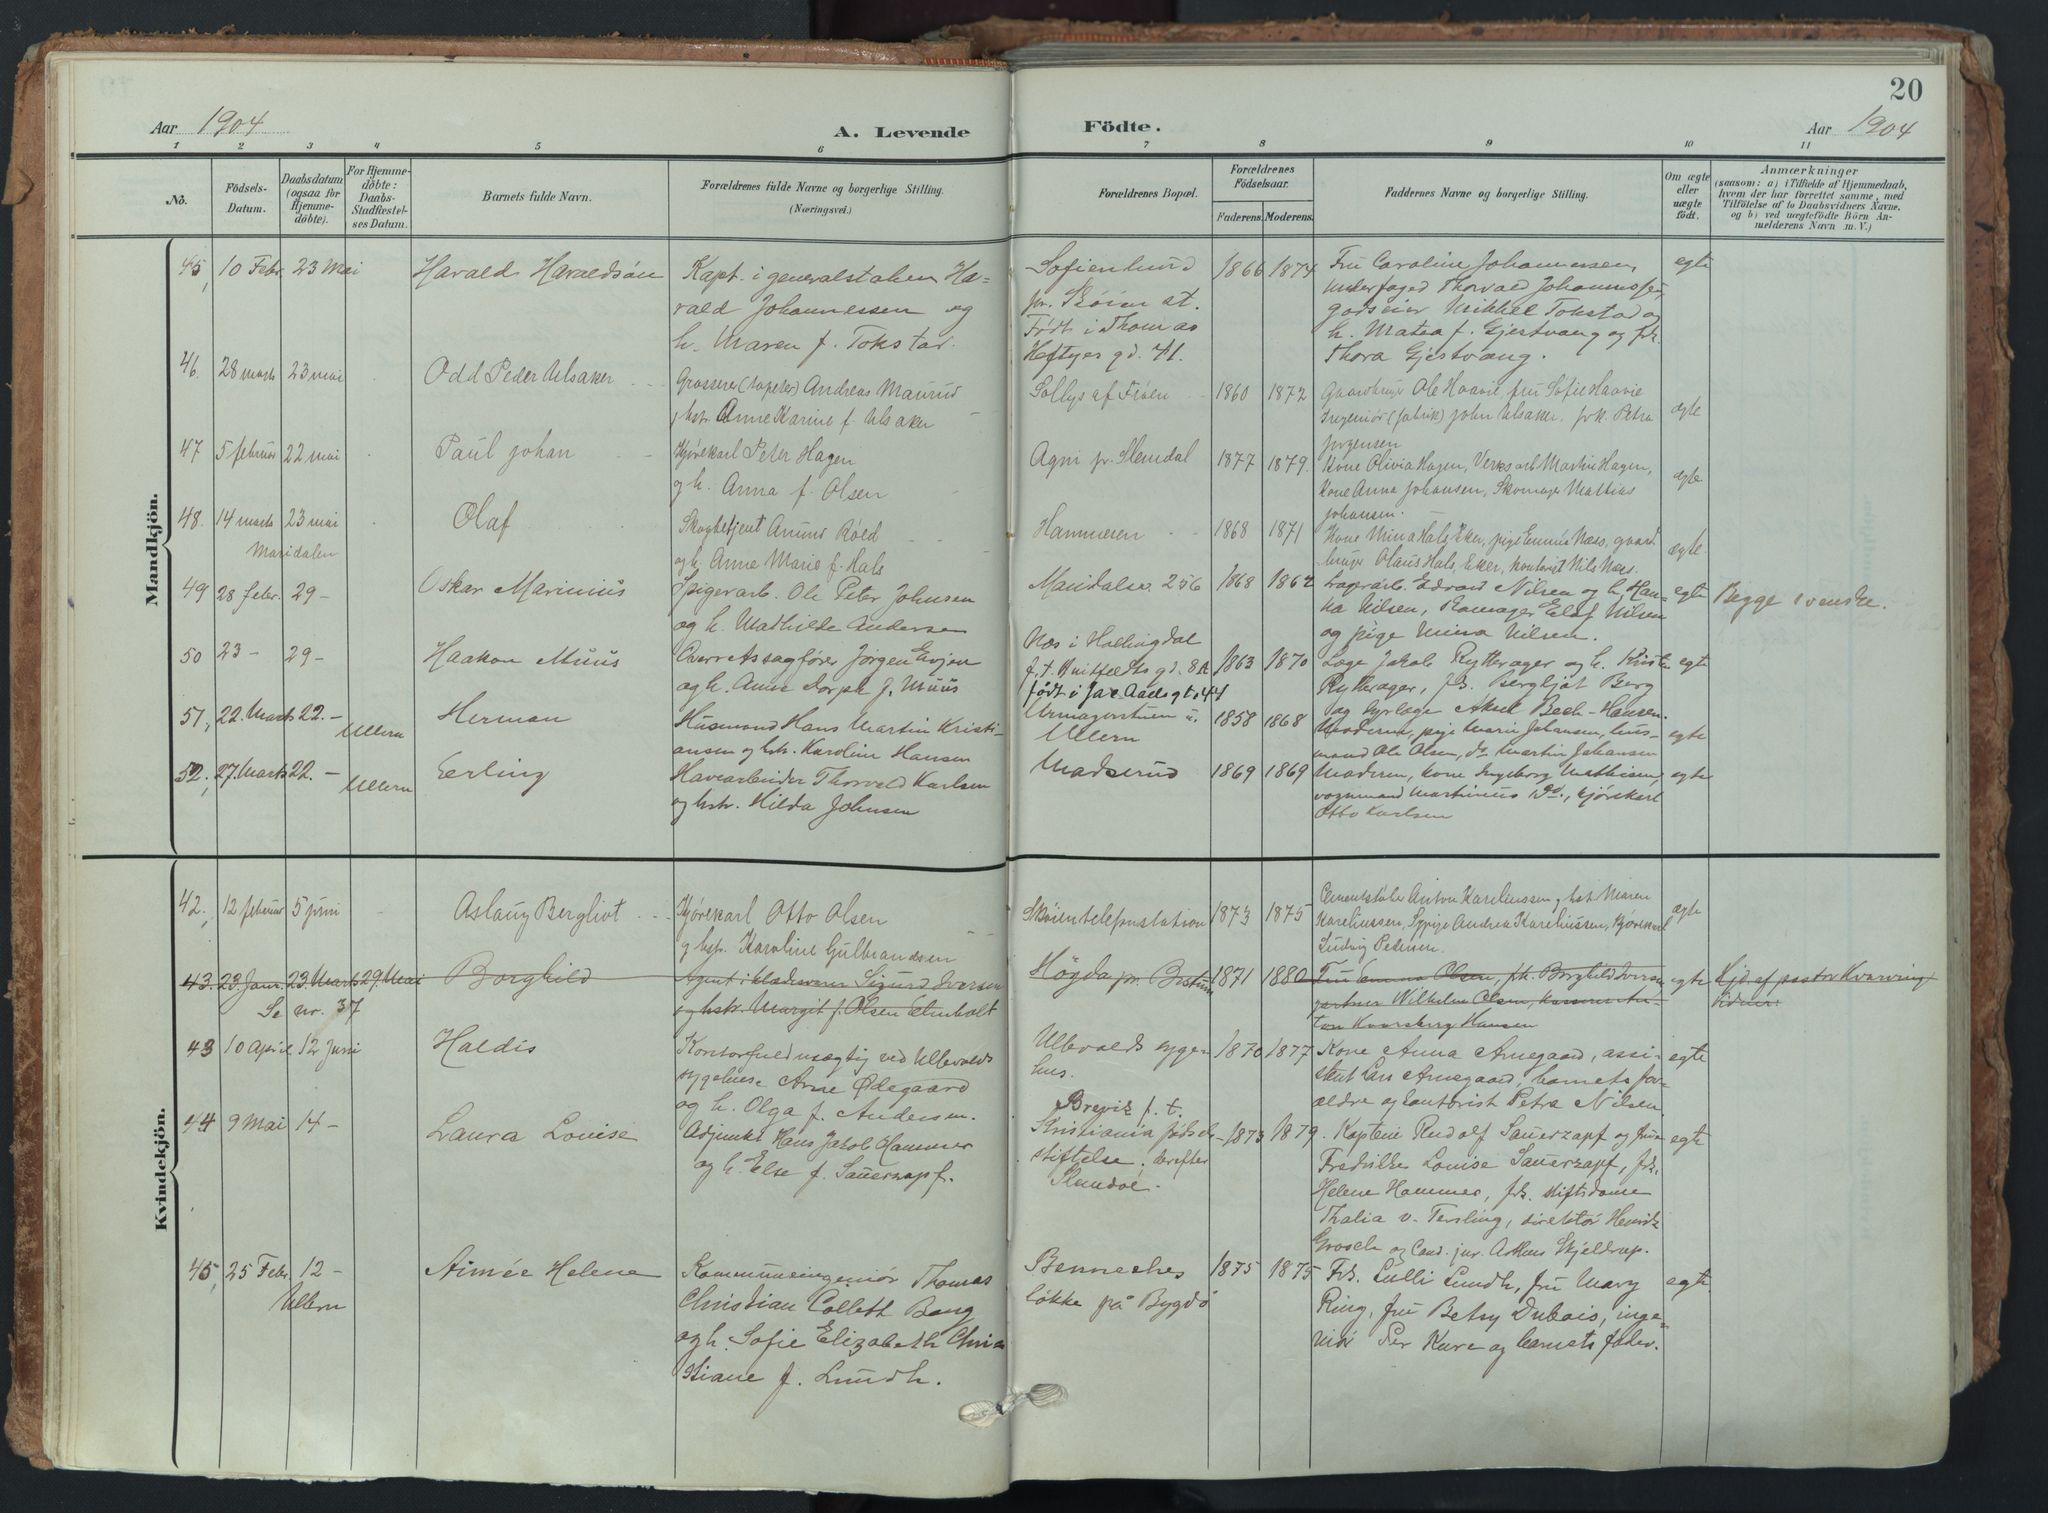 Aar 1904
A. Levende
Födte.
Aar 1904
20
1 2 3 4 5 6 7 8 9 10 11
No.
Födsels-Datum.
Daabsdatum (ogsaa for Hjemme-döbte).
For Hjemme-döbte: Daabs-Stadfæstel-ses Datum.
Barnets fulde Navn.
Forældrenes fulde Navne og borgerlige Stilling. (Næringsvei.)
Forældrenes Bopæl.
Forældrenes Födselsaar.
Faderens. Moderens.
Faddernes Navne og borgerlige Stilling.
Om ægte eller uægte födt.
Anmærkninger
(saasom: a) i Tilfælde af Hjemmedaab,
hvem der har forrettet samme, med
Tilföielse af to Daabsvidners Navne,
og b) ved uægtefödte Börn An-
melderens Navn m. V.)
Mandkjön.
45, 10 Febr. 23 Mai Harald Haraldsön
Kapt. i generalstaben Ha-
rald Johannessen og
h. Maren f. Tokstad.
Sofienlund
pr. Skøien st.
Født i Thomas
Heftyes gd. 41.
1866 1874
Fru Caroline Johannessen,
Thorvald Johannessen,
godseier Mikkel Tokstad og
h. Matea f. Gjestvang og frk.
Thora Gjestvang.
egte
46. 28 marts 23 mai Odd Peder Ulsaker
Grosserer (tapeter) Andreas Maurud
g hst. Anne Karine f. Ulsaker
Sollys af Frøen
1860 1872
Gaardbruger Ole Haavie, fru Sofie Haavie
Ingeniør (fabrik) John Ulsaker. frk. Petra
Jørgensen
ægte
47 5 februar 22 mai Paul Johan
Kjørekarl Peter Hagen
og h. Anna f. Olsen
Agni pr. Slemdal
1877 1879.
Kone Olivia Hagen, Verksarb Martin Hagen,
Kone Anna Johansen, Skomager Mattias
Johansen.
ægte
48. 14 marts 23 mai Olaf
Maridalen
Skogbetjent Amund Roed
og h. Anne Marie f. Hals
Hammeren
1868 1871
Kone Mina Hals Eker, pige Emma Næs, gaard
bruger Olaus Hals, Eker, kontorist Nils Næs.
ægte.
49 28 febr. 29- Oskar Marinius
Spigerarb. Ole Peter Johnsen
og h. Mathilde Andersen
Maridalsv. 256
1868 1862
Edvard Nilsen og h. Han-
na Nilsen, Skomager Nilsen
og pige Mina Nilsen.
egte
Begge svenske.
50 23- 29- Haakon Muus
Overretssagfører Jørgen Evjen
og h. Anne Dorph f. Muus
Næs i Hallingdal
f. t. Huitfeldts gd. 8A
født i Jac. Aalls gt. 44
1863 1870
Læge Jakob Rytterager og h. Kristi
Rytterager, frk. Bergljot Berg
og Aksel Bech-Hansen.
egte
51, 22. Marts 22.- Ullern Herman
Husmand Hans Martin Kristi-
ansen og hst. Karoline Hansen
Urmagerstuen u.
Ullern
1858 1868
Moderen, pige Marie Johansen, hus-
mand Ole Olsen, do. Martin Johansen
egte
52, 27. Marts 22.- Ullern Erling
Havearbeider Thorvald Karlsen
og hst. Hilda Johnsen
Madserud
1869 1869
Moderen, kone Ingeborg Mathisen,
vognmand Martinius do., kjørekarl
Otto Karlsen
egte
Kvindekjön.
42, 12 februar 5 juni Aslaug Bergliot
Kjørekarl Otto Olsen
g hst. Karoline Gulbrandsen
Skøien telefonstation
1873 1875
Cementstøber Anton Kareliussen g hst Maren
Kareliussen, Sypige Andrea Kareliussen, Kjørekarl
Ludvig Pedersen.
ægte
43. 23 Janr. 23. Marts 29. Mai Borghild
Se nr. 37
Agent i Sigurd Iversen
og hstr. Margit f. Olsen Elnholt
Høgda pr. Bestum
1871 1880
Fru Emma Olsen, frk. Borghild Iversen
gartner Wilhelm Olsen, An-
ton Kvarsberg Hansen
egte
Hjd. af pastor Kvarving
Vidner:
43 10 April 12 Juni Haldis
Kontorfuldmægtig ved Ullevaals
sygehuse Arne Ødegaard
og h. Olga f. Andersen.
Ullevaals syge-
hus.
1870 1877
Kone Anna Arnegaard, assi-
stent Lars Arnegaard, barnets for-
ældre og kontorist Petra Nilsen
egte
44 9 Mai 14- Laura Louise
Adjunkt Hans Jakob Hammer
og h. Else f. Sauerzapf.
Brevik f. t.
Kristiania fødsels-
stiftelse, derefter
Slemdal.
1873 1879
Kaptein Rudolf Sauerzapf og frue
Fredrikke Louise Sauerzapf, frk.
Helene Hammer, frk. stiftsdame
Thalia v. Tersling, direktør Henrik
Grosch og Cand. jur. Arthur Skjeldrup.
egte
45, 25 Febr. 12- Aimée Helene
Ullern
Kommuneingeniør Thomas
Christian Collett Bang
og h. Sofie Elizabeth Chri-
stiane f. Lundh.
Benneches
løkke på Bygdø
1875 1875
Frk. Lulli Lundh, fru Mary
Ring, fru Betsy Dubois, inge-
niør Per Kure og barnets fader.
egte.